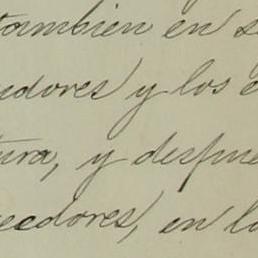 también en s
edores y los c
ura, y despue
eedores, en lo